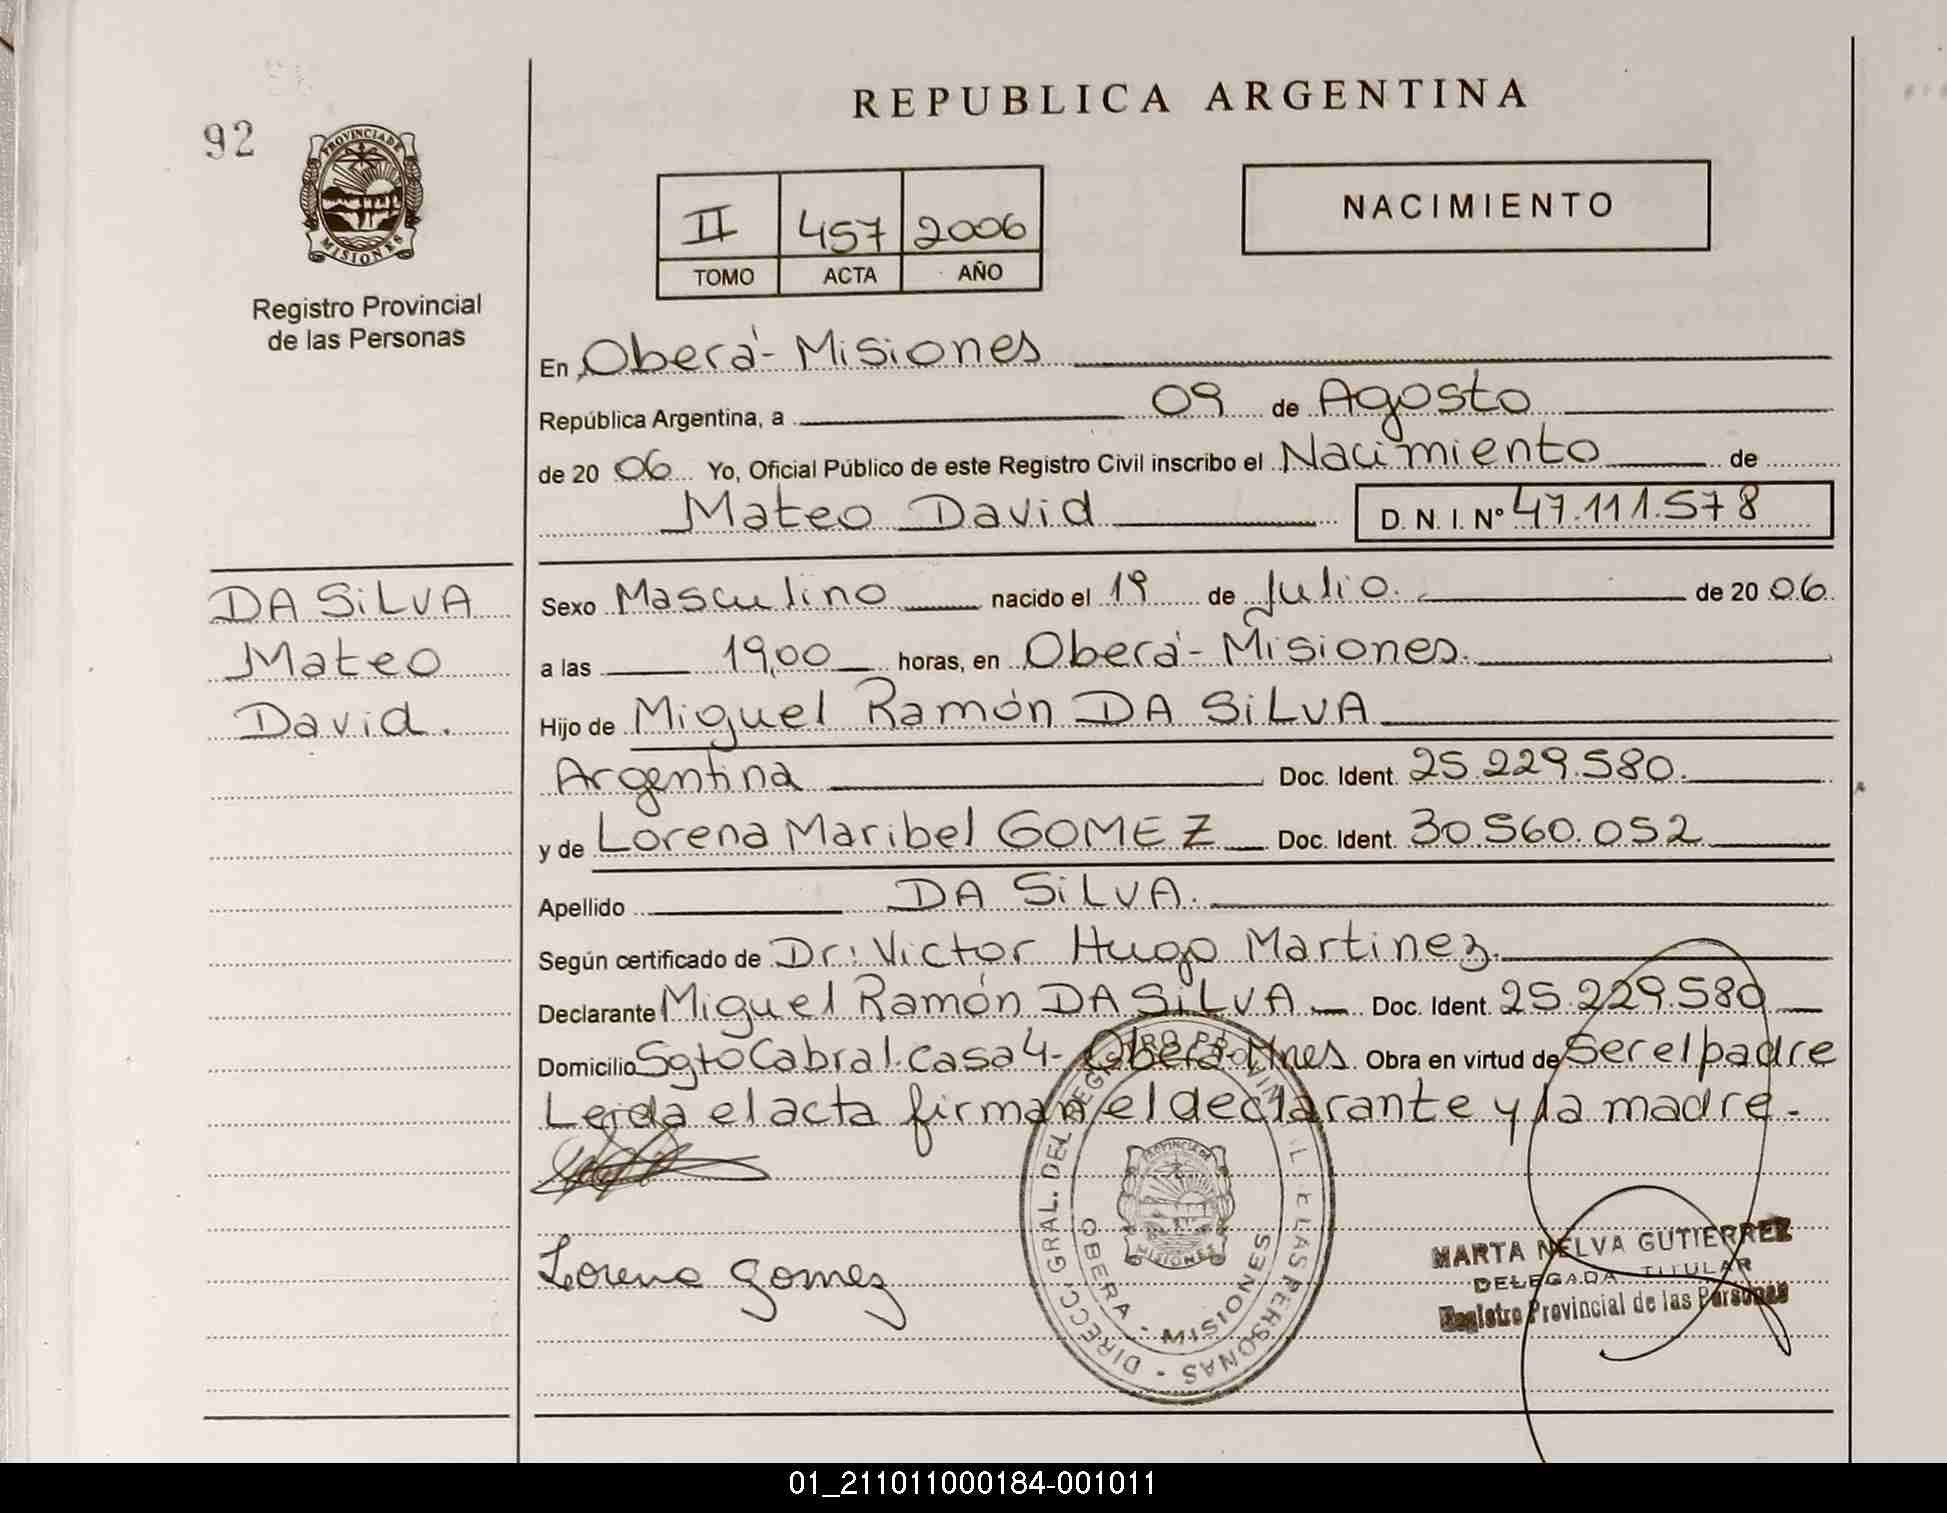 REPUBLICA ARGENTINA
92
PROVINCIA DE
MISIONES
Registro Provincial
de las Personas
II 457 2006
TOMO ACTA AÑO
NACIMIENTO
En Oberá - Misiones
República Argentina, a 09 de Agosto
de 20 06 Yo, Oficial Público de este Registro Civil inscribo el Nacimiento de
Mateo David D. N. I. Nº 47.111.578
DA SiLVA
Mateo
David.
Sexo Masculino nacido el 19 de Julio. de 20 06.
a las 19,00 horas, en Oberá - Misiones.
Hijo de Miguel Ramón DA SiLVA
Argentina Doc. Ident. 25.229.580.
y de Lorena Maribel GOMEZ Doc. Ident. 30.560.052
Apellido DA SiLVA.
Según certificado de Dr: Victor Hugo Martinez.
Declarante Miguel Ramón DA SiLVA Doc. Ident. 25.229.580
Domicilio Sgto Cabral. Casa 4- Oberá-Mnes. Obra en virtud de Ser el padre
Leida el acta firman el declarante y la madre.-
Lorena gomez
DIRECC. GRAL. DEL REGISTRO PROVINCIAL E LAS PERSONAS -
PROVINCIA DE
MISIONES
OBERA - MISIONES
MARTA NELVA GUTIERREZ
DELEGADA TITULAR
Registro Provincial de las Personas
01_211011000184-001011